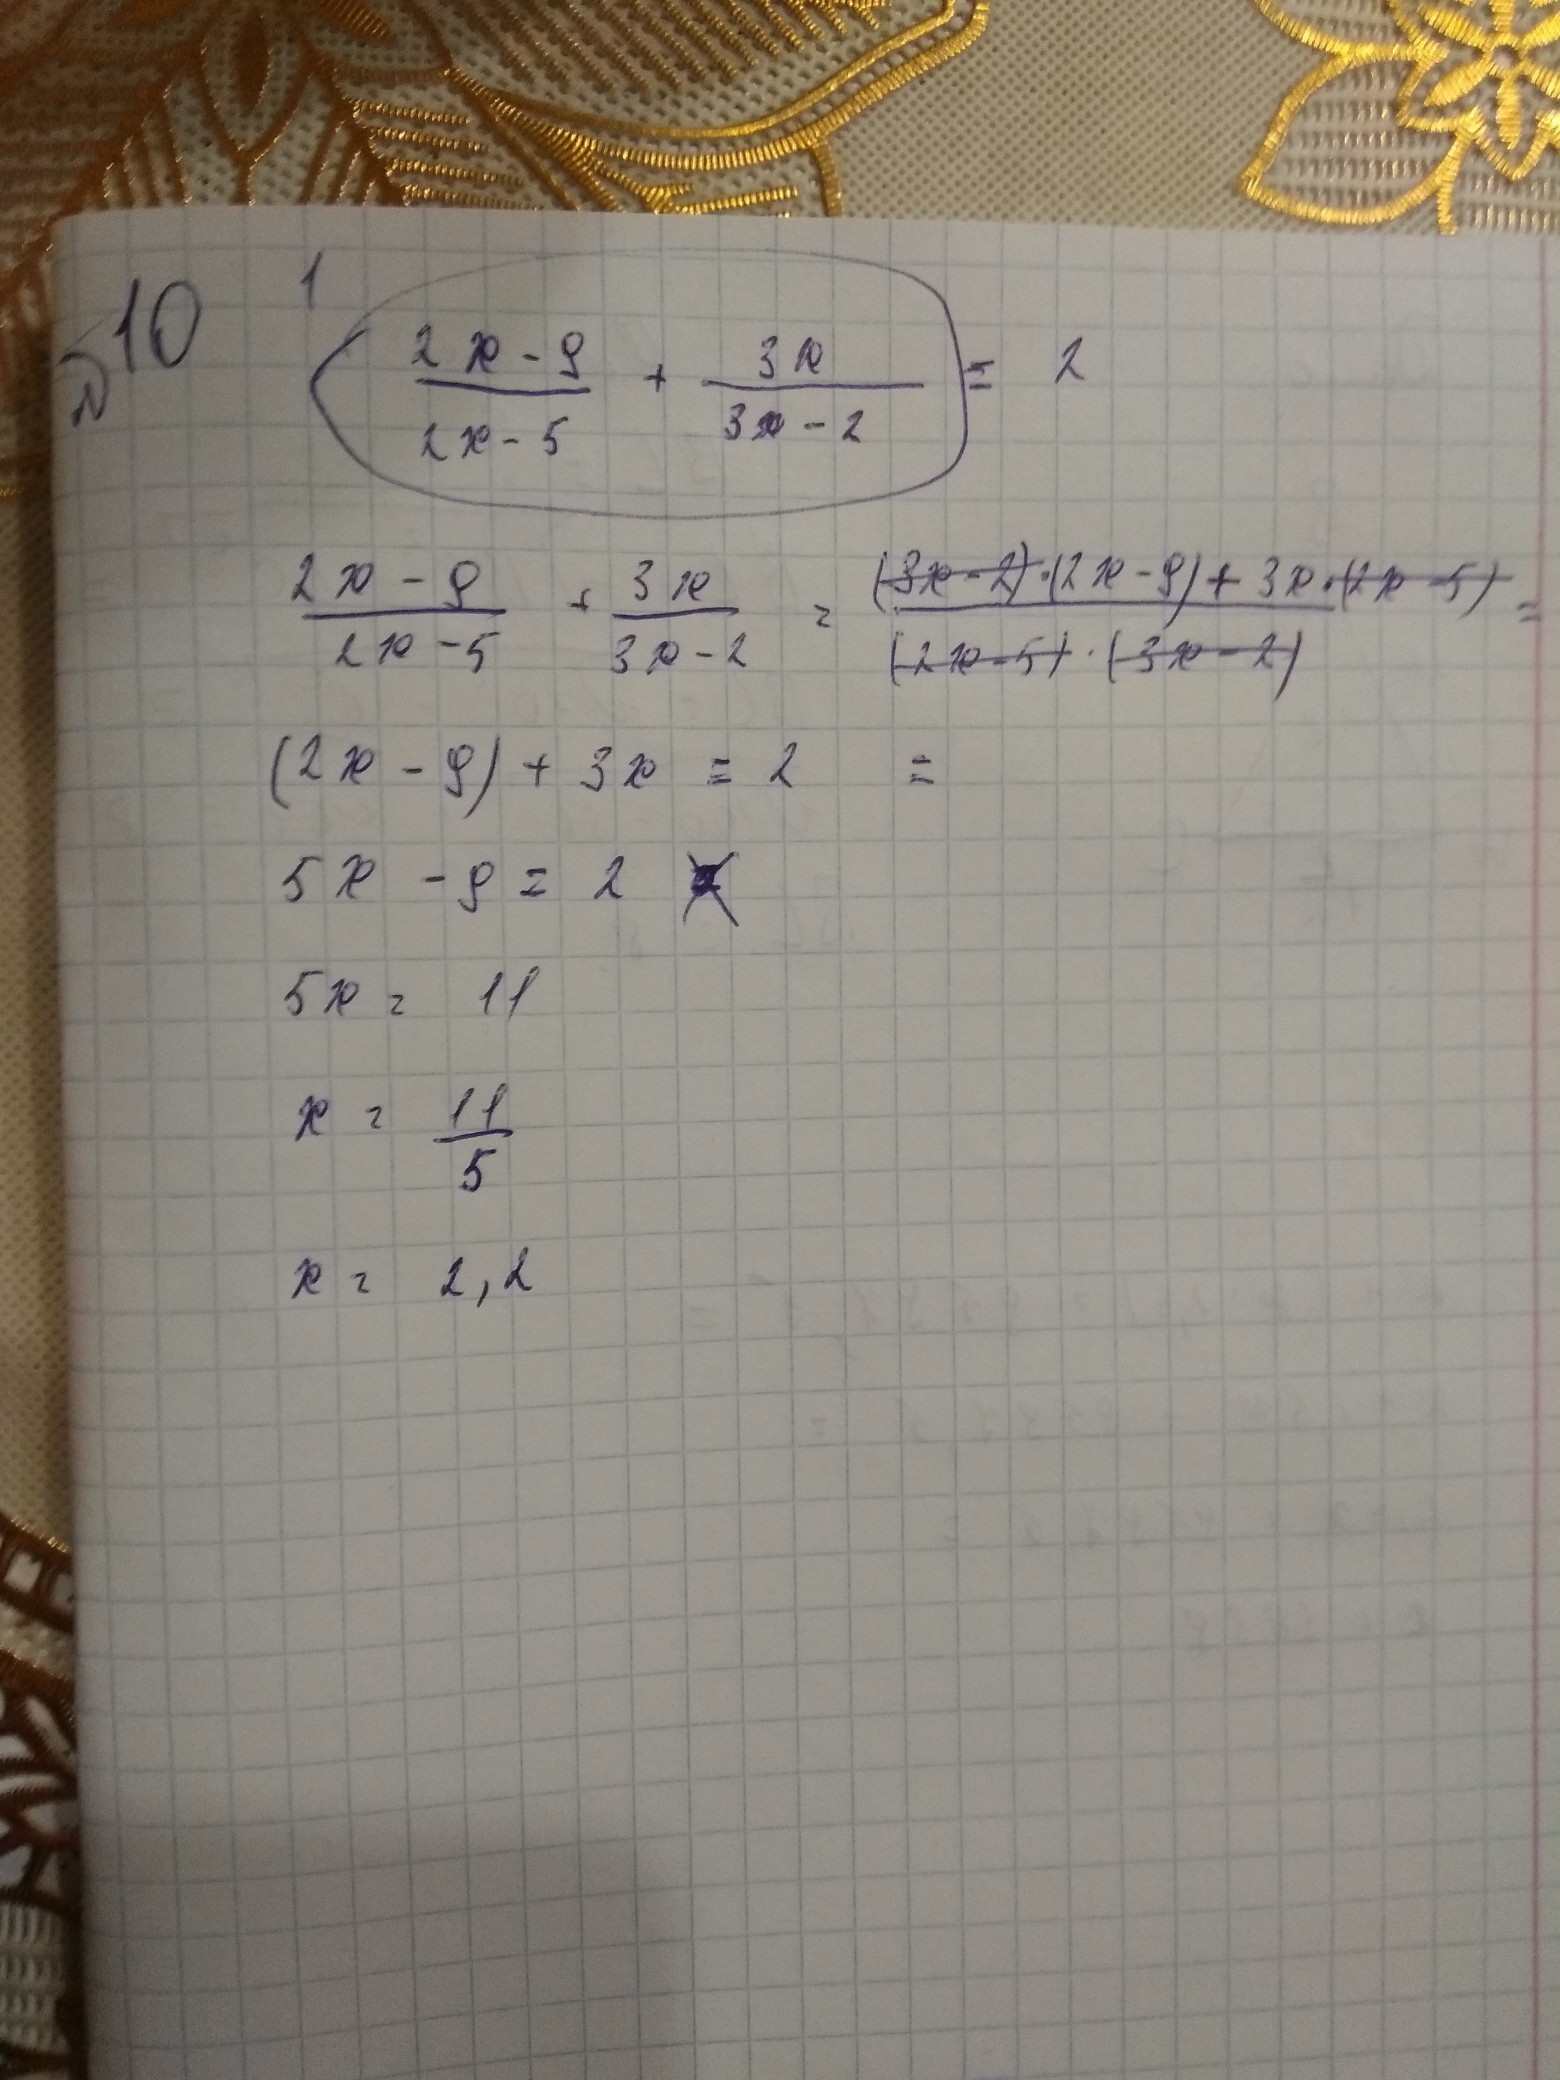 №10 1
(2x - 9)/(2x - 5) + 3x/(3x - 2) = 2
(2x - 9)/(2x - 5) + 3x/(3x - 2) = ((3x - 2)·(2x - 9) + 3x·(2x - 5))/((2x - 5)·(3x - 2)) =
(2x - 9) + 3x = 2 =
5x - 9 = 2
5x = 11
x = 11/5
x = 2,2